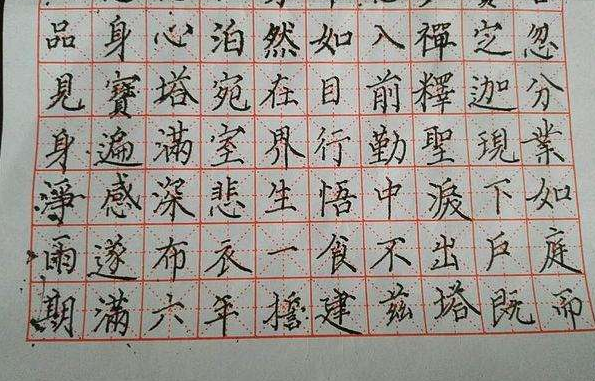 品身心泊然如入禪定忽
見寶塔宛在目前釋迦分
身遍滿室界行勤聖現業
淨感深悲生悟中淚下如
雨遂布衣一食不出戶庭
期滿六年擔建茲塔既而